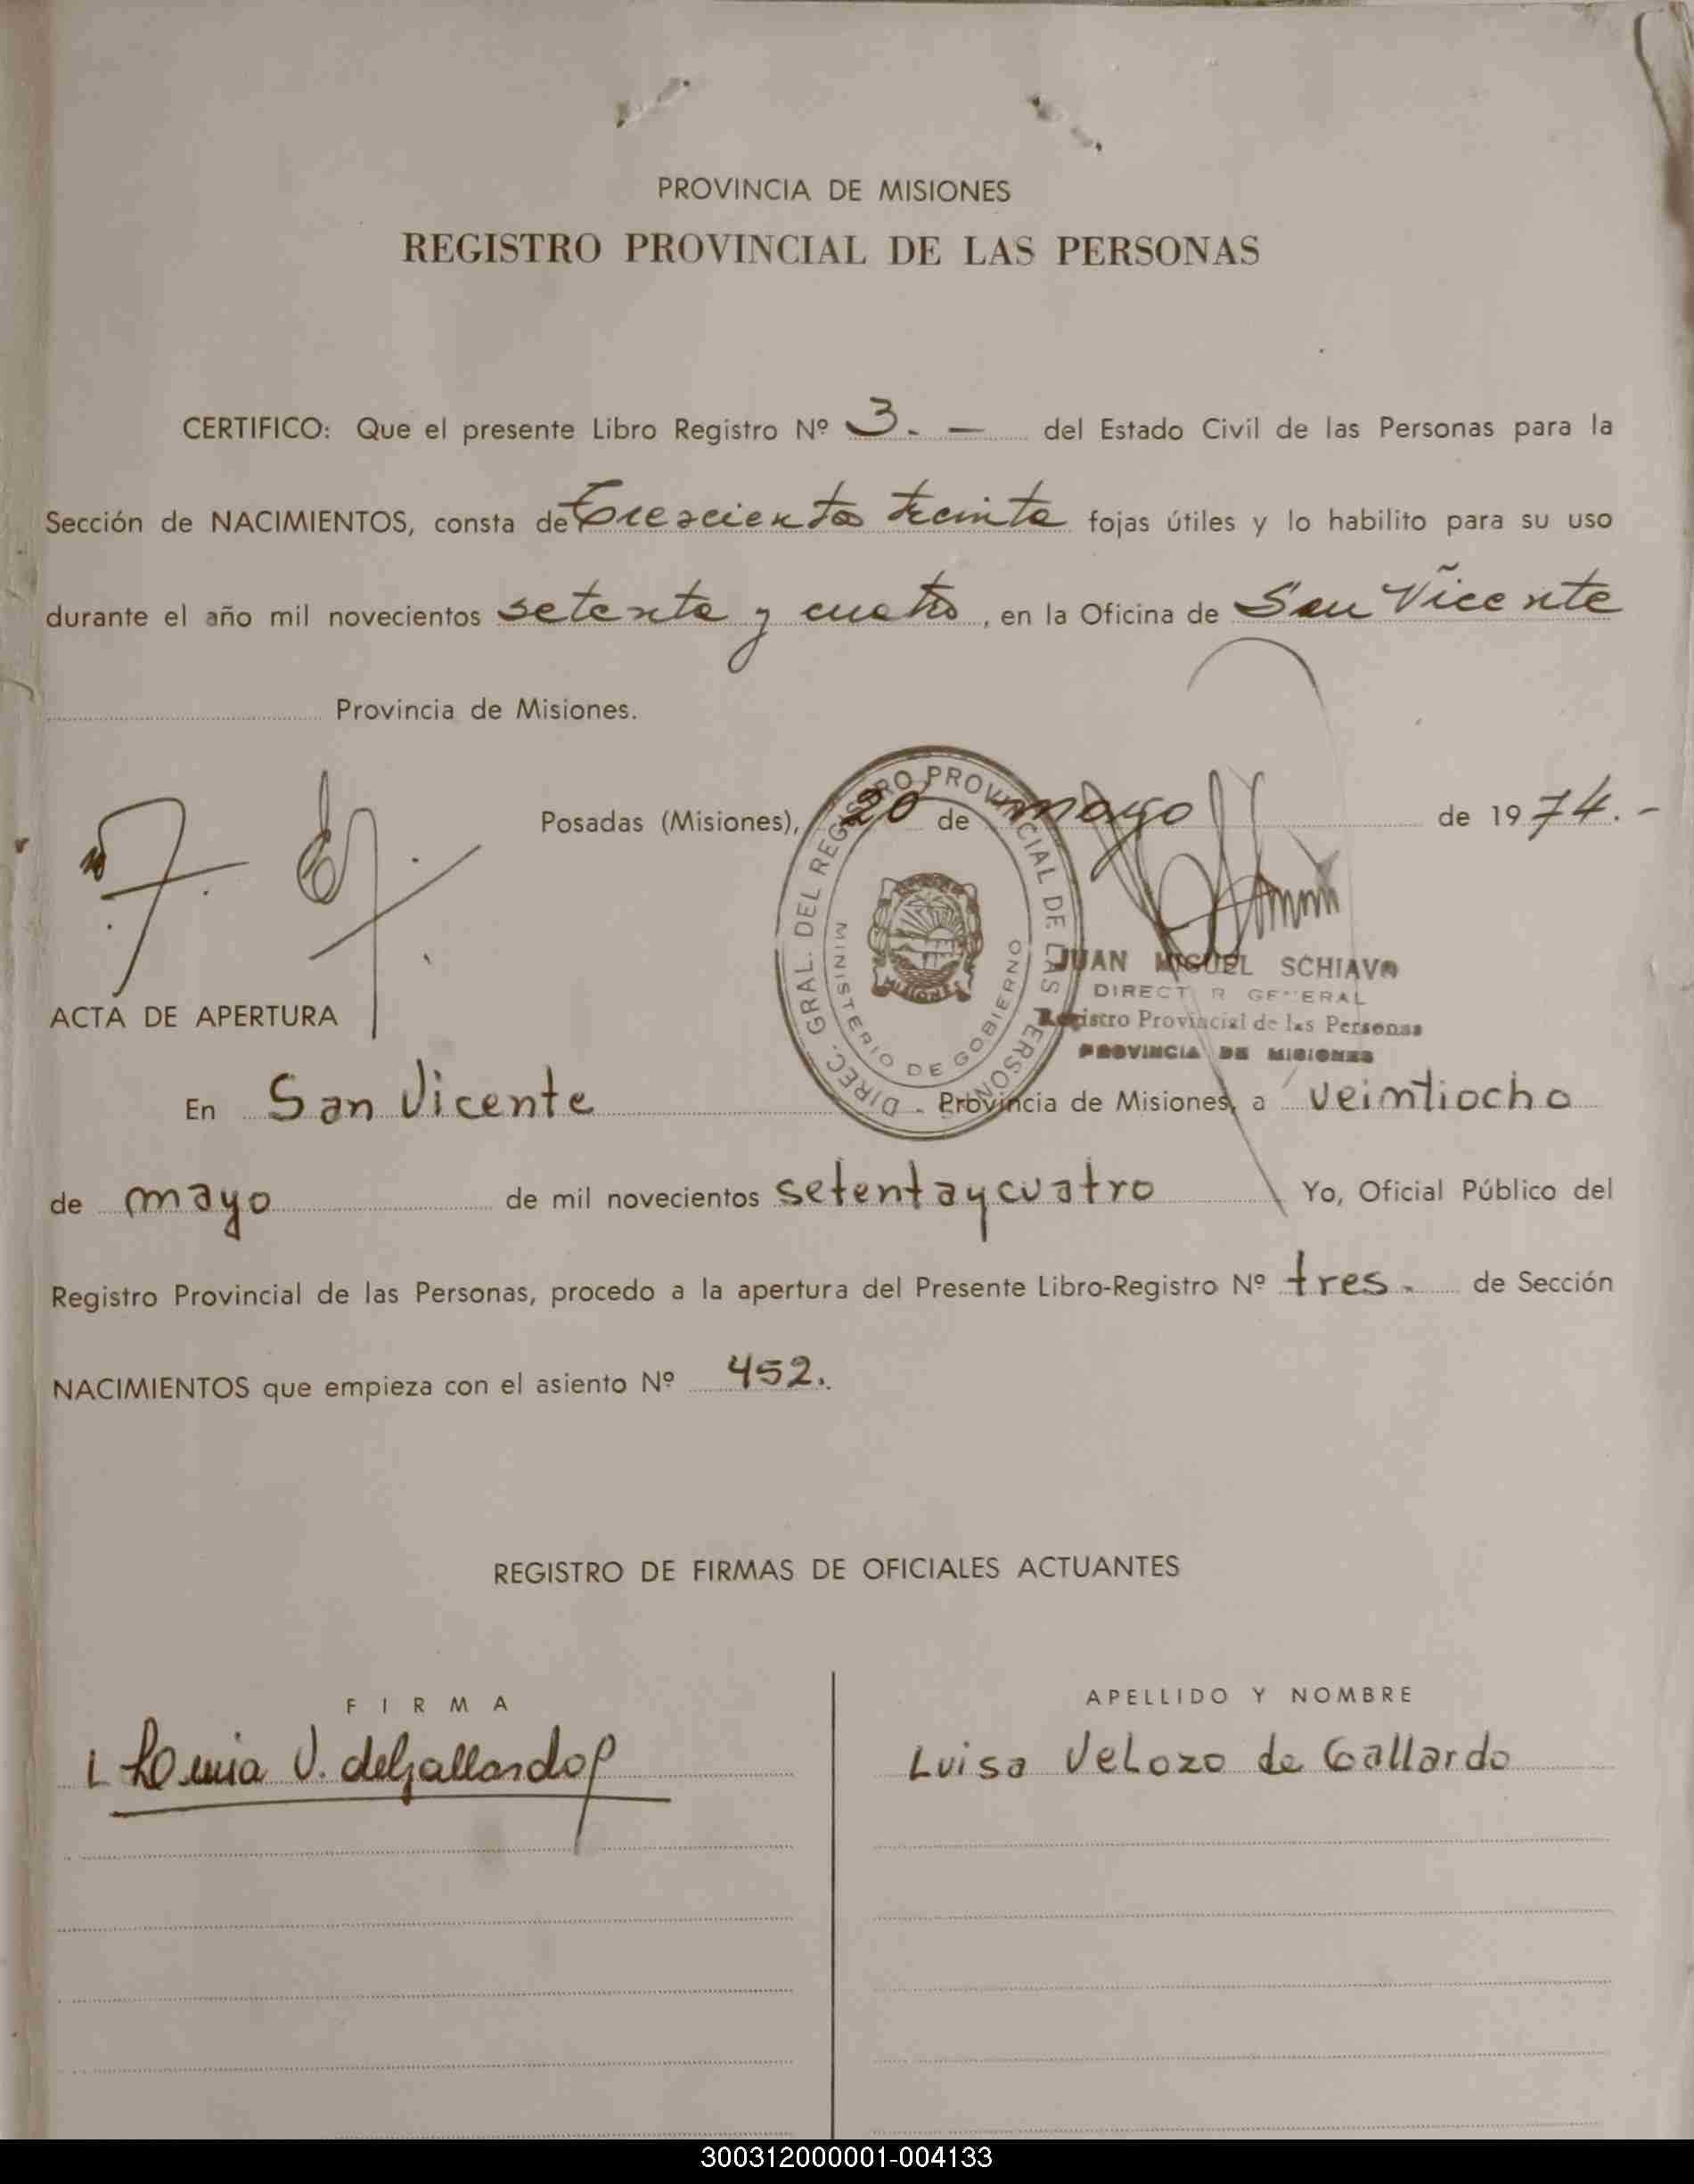 PROVINCIA DE MISIONES
REGISTRO PROVINCIAL DE LAS PERSONAS
CERTIFICO: Que el presente Libro Registro Nº 3. — del Estado Civil de las Personas para la
Sección de NACIMIENTOS, consta de Trescienta treinta fojas útiles y lo habilito para su uso
durante el año mil novecientos setenta y cuatro, en la Oficina de San Vicente
Provincia de Misiones.
Posadas (Misiones), 20 de mayo de 1974.-
DIREC. GRAL. DEL REGISTRO PROVINCIAL DE LAS PERSONAS
MINISTERIO DE GOBIERNO
MISIONES
JUAN MIGUEL SCHIAVO
DIRECT R GENERAL
Registro Provincial de las Personas
PROVINCIA DE MISIONES
ACTA DE APERTURA
En San Vicente Provincia de Misiones, a veintiocho
de mayo de mil novecientos setenta y cuatro Yo, Oficial Público del
Registro Provincial de las Personas, procedo a la apertura del Presente Libro-Registro Nº tres. de Sección
NACIMIENTOS que empieza con el asiento Nº 452.
REGISTRO DE FIRMAS DE OFICIALES ACTUANTES
FIRMA
APELLIDO Y NOMBRE
V. de Gallardo
Luisa Velozo de Gallardo
300312000001-004133